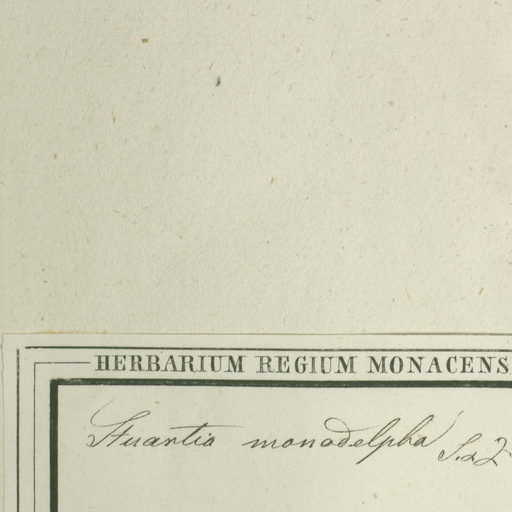 HERBARIUM REGIUM MONACENS
Stuartia monadelpha S. & Z